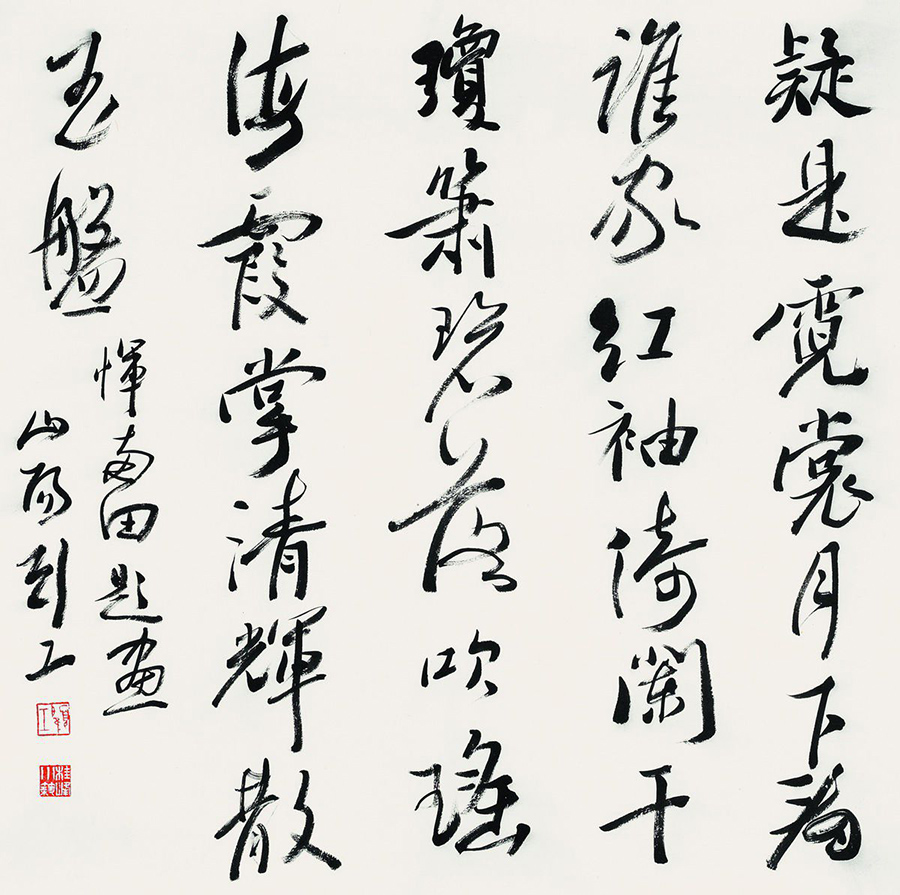 疑是霓裳月下看
誰家紅袖倚闌干
瓊簫碧落吹瑤
海霞掌清輝散
玉盤
惲南田題畫
山陽劉工